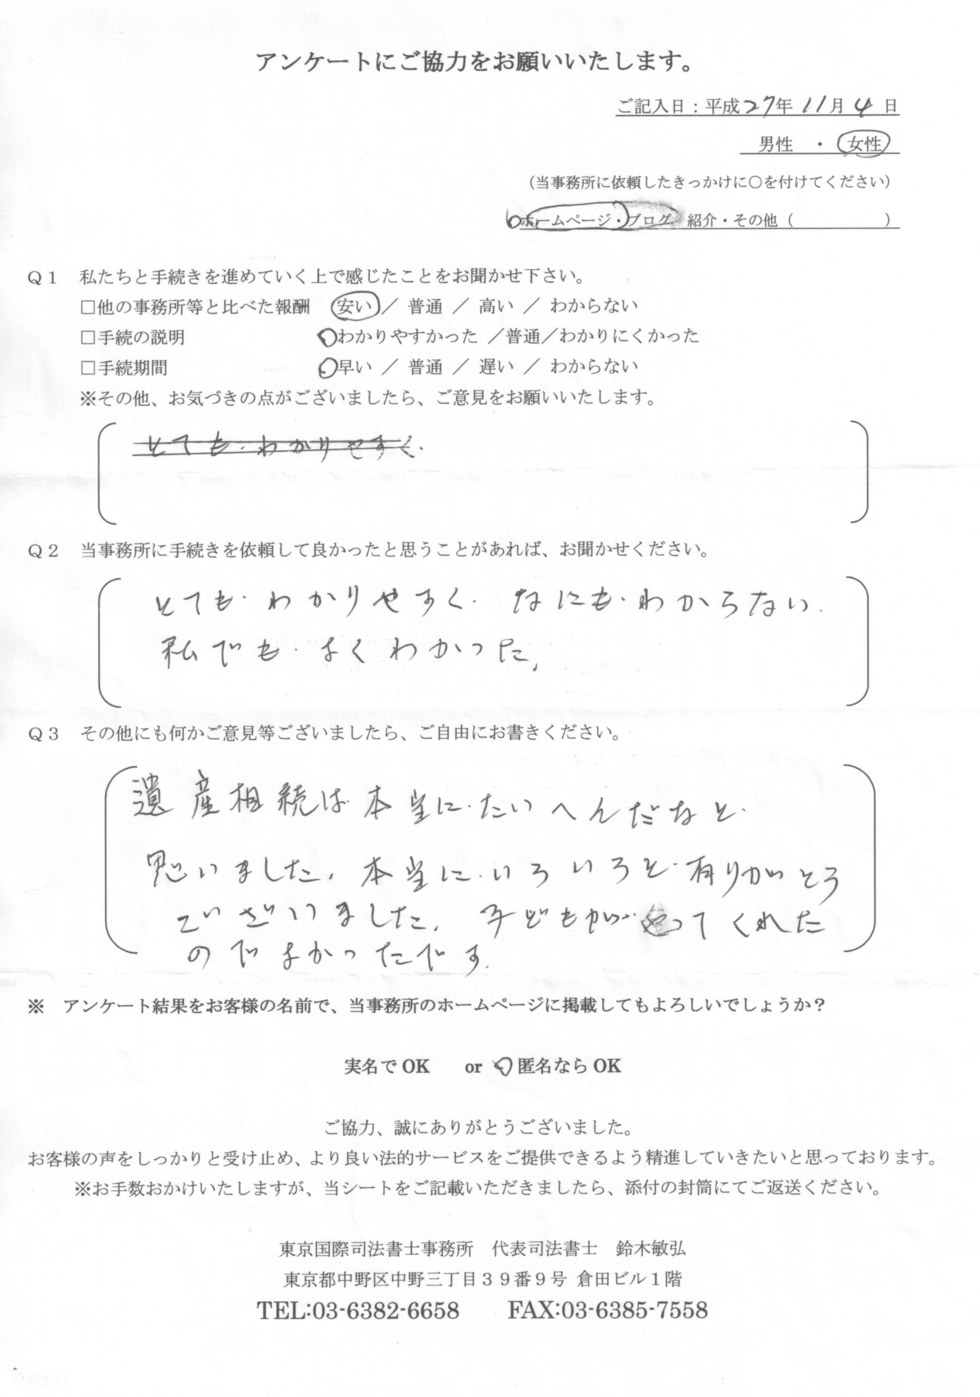 アンケートにご協力をお願いいたします。
ご記入日：平成27年11月4日
男性 ・ 女性
（当事務所に依頼したきっかけに○を付けてください）
ホームページ・ブログ 紹介・その他（ ）
Q1 私たちと手続きを進めていく上で感じたことをお聞かせ下さい。
□他の事務所等と比べた報酬 安い／ 普通 ／ 高い ／ わからない
□手続の説明 わかりやすかった ／普通／わかりにくかった
□手続期間 早い ／ 普通 ／ 遅い ／ わからない
※その他、お気づきの点がございましたら、ご意見をお願いいたします。
とても わかりやすく
Q2 当事務所に手続きを依頼して良かったと思うことがあれば、お聞かせください。
とても わかりやすく なにも わからない
私でも よくわかった。
Q3 その他にも何かご意見等ございましたら、ご自由にお書きください。
遺産相続は本当に たいへんだなと
思いました。本当に いろいろと 有りがとう
ございました。子どもが やってくれた
のでよかったです。
※ アンケート結果をお客様の名前で、当事務所のホームページに掲載してもよろしいでしょうか？
実名でOK or 匿名ならOK
ご協力、誠にありがとうございました。
お客様の声をしっかりと受け止め、より良い法的サービスをご提供できるよう精進していきたいと思っております。
※お手数おかけいたしますが、当シートをご記載いただきましたら、添付の封筒にてご返送ください。
東京国際司法書士事務所 代表司法書士 鈴木敏弘
東京都中野区中野三丁目３９番９号 倉田ビル１階
TEL:03-6382-6658 FAX:03-6385-7558